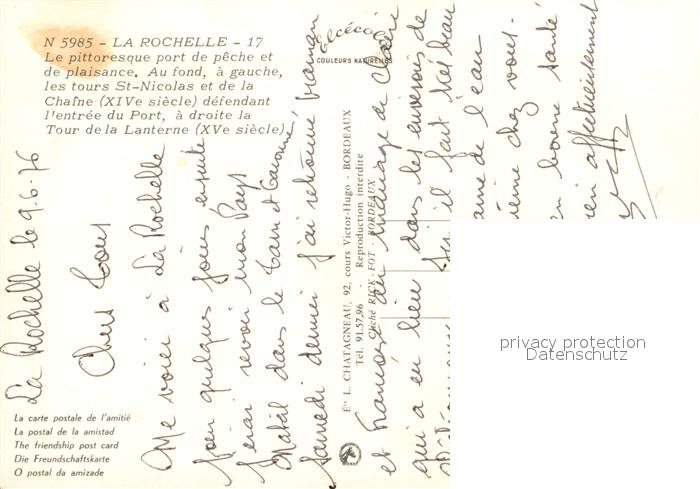 N 5985 - LA ROCHELLE - 17
Le pittoresque port de pêche et
de plaisance. Au fond, à gauche,
les tours St-Nicolas et de la
Chaîne (XIVe siècle) défendant
l'entrée du Port, à droite la
Tour de la Lanterne (XVe siècle)
COULEURS NATURELLES
La Rochelle le 9.6.76
Chers tous
Me voici à La Rochelle
pour quelques jours ensuite
j'irai revoir mon Pays
Natal dans le Tarn et Garonne
Samedi dernier j'ai retrouvé maman
et Françoise au mariage de Claire
qui a eu lieu dans les environs de
il fait très beau
de l'eau
chez vous.
en bonne santé
bien affectueusement
Éts L. CHATAGNEAU, 92, cours Victor-Hugo - BORDEAUX
Tél. 91.57.96 - Reproduction interdite
Cliché RICK-FOT - BORDEAUX
La carte postale de l'amitié
La postal de la amistad
The friendship post card
Die Freundschaftskarte
O postal da amizade
privacy protection
Datenschutz